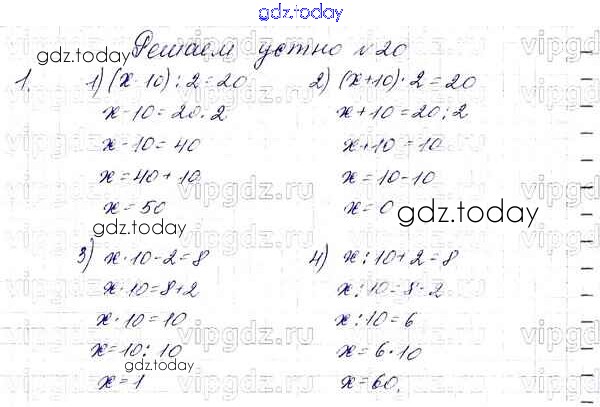 gdz.today
Решаем устно №20
gdz.today
1. 1) (x-10):2=20 2) (x+10)·2=20
x-10=20·2 x+10=20:2
x-10=40 x+10=10
x=40+10 x=10-10
x=50 x=0
gdz.today
gdz.today
3) x·10-2=8 4) x:10+2=8
x·10=8+2 x:10=8-2
x·10=10 x:10=6
x=10:10 x=6·10
gdz.today
x=1 x=60.
vipgdz.ru